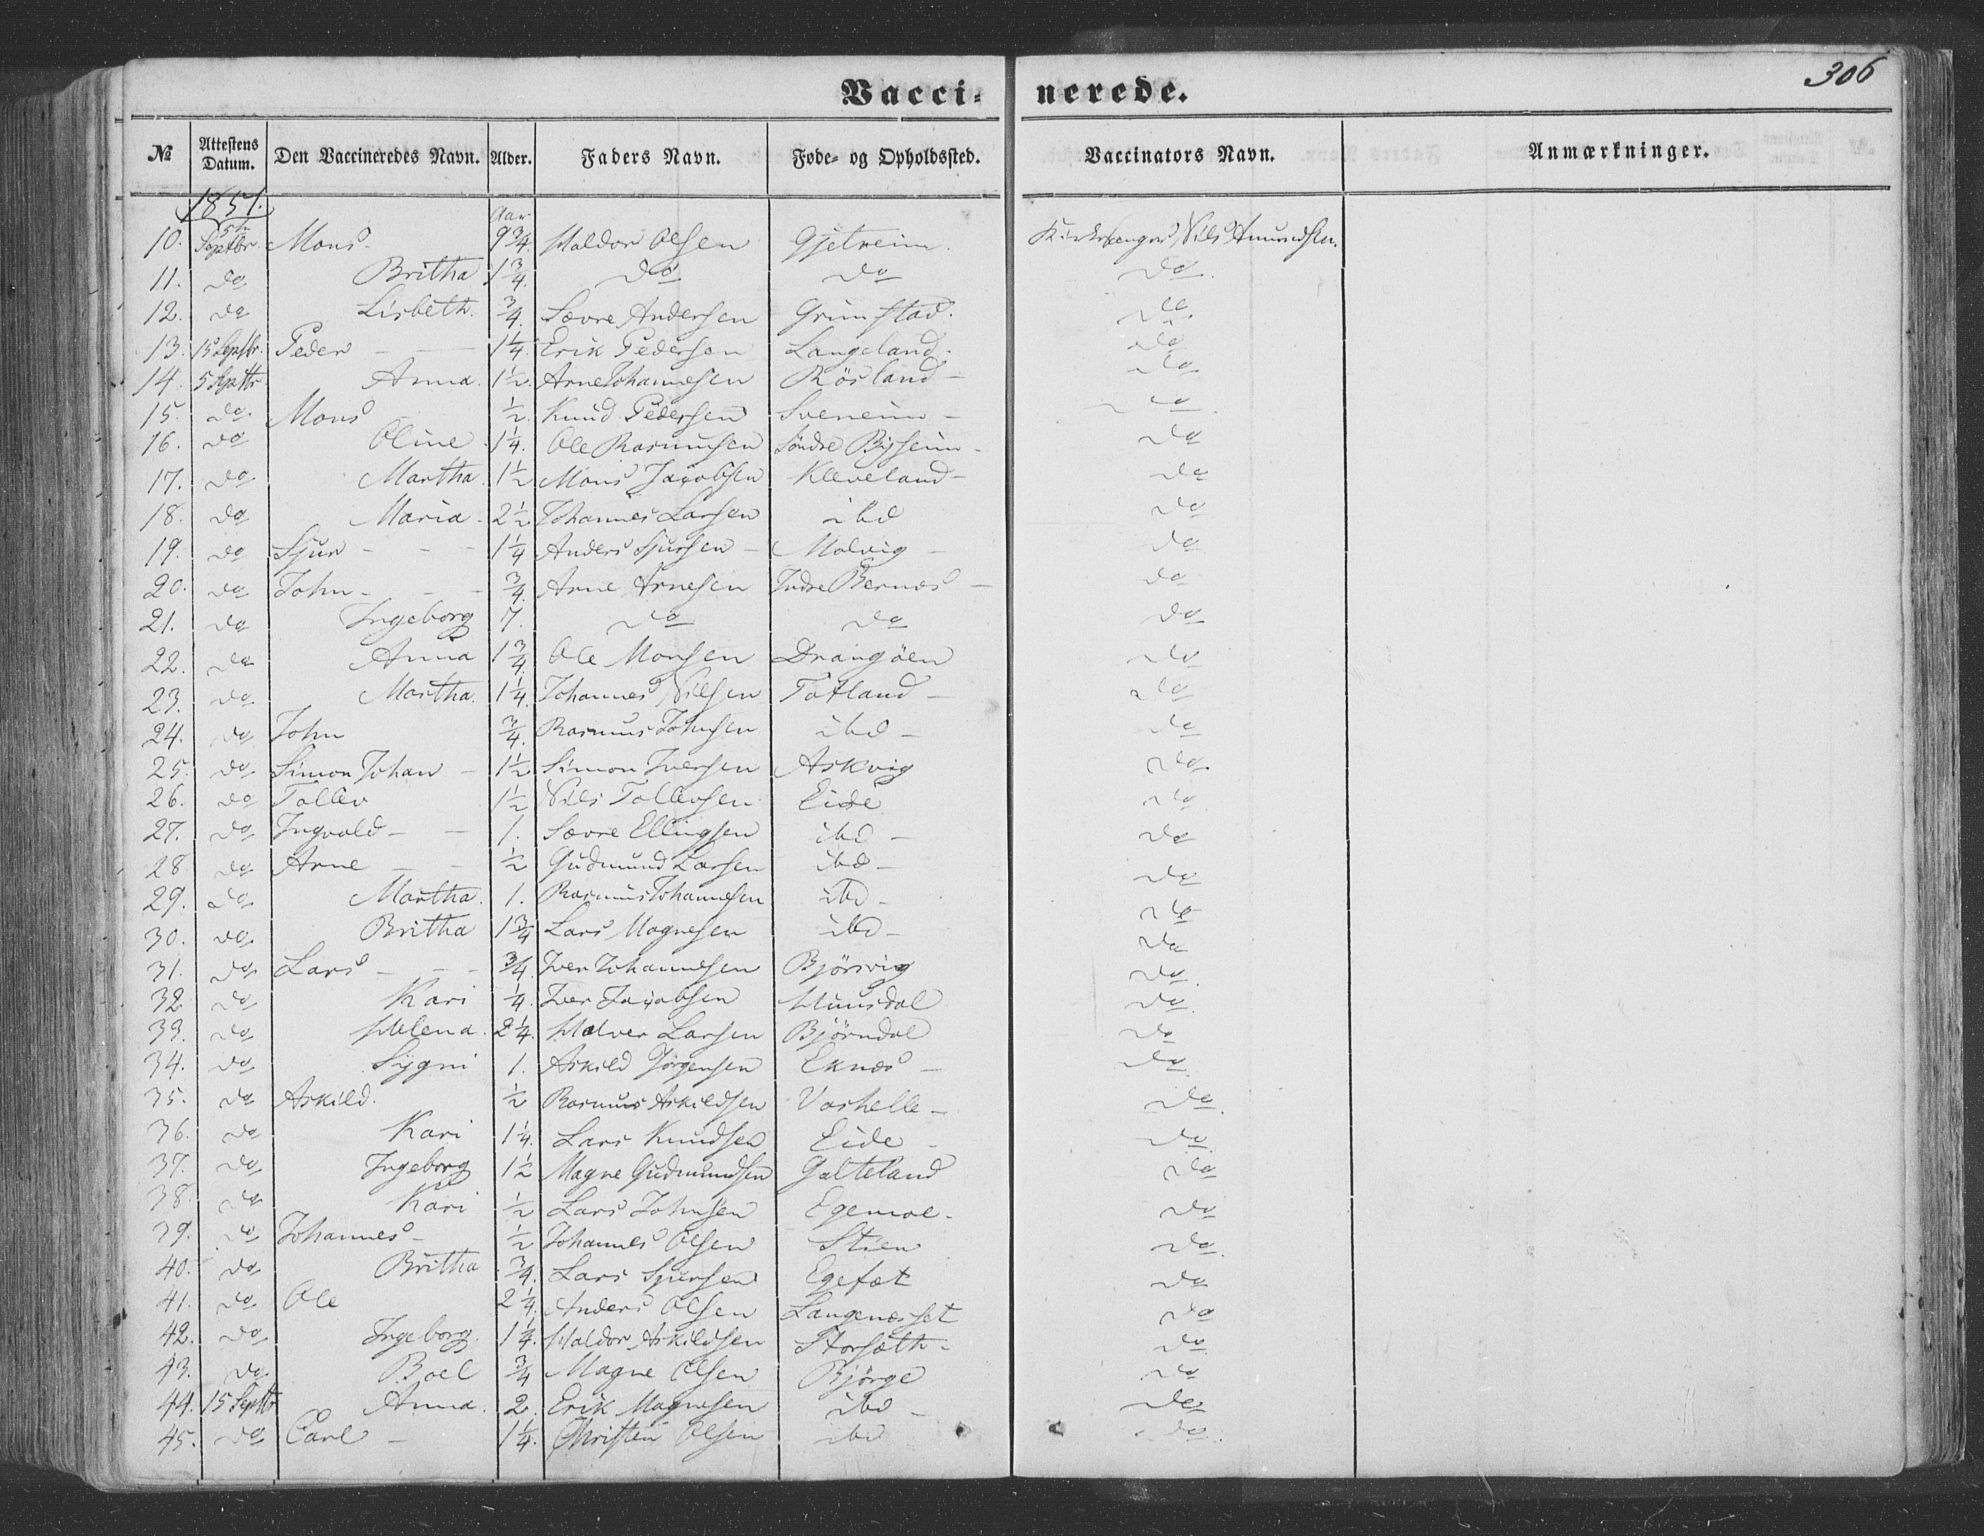 306
Vacci- nerede.
№ Attestens Datum. Den Vaccineredes Navn. Alder. Faders Navn. Føde- og Opholdssted. Vaccinators Navn. Anmærkninger.
1857. Aar
10. 5te Septbr. Mons. 9 3/4. Haldor Olsen Gjetreim. Kirkesanger Nils Amundsen.
11. do Britha 1 3/4. do do do.
12. do Lisbeth. 3/4. Sævre Andersen Grimstad. do.
13. 15 Septbr. Peder - - 1 1/4. Erik Pedersen Langeland. do
14. 5 Septbr. Anna. 1 1/2. Arne Johannesen Rösland - do
15. do. Mons 1/2. Knud Pedersen - do.
16. do Oline 1 1/4. Ole Rasmusen Söndre Bysheim - do
17. do Martha. 1 1/2 Mons Jacobsen Kleveland - do
18. do Maria. 2 1/2 Johannes Larsen ibd do
19. do Sjur - - - 1 1/4 Anders Sjursen - Molvig - do
20. do John - - - 3/4. Arne Arnesen Indre Bernæs - do
21. do Ingeborg 7. do do do
22. do Anna 1 3/4 Ole Monsen Drangöen do
23. do Martha. 1 1/4. Johannes Nilsen Totland - do
24. do John 3/4. Rasmus Johnsen ibd - do
25. do Simon Johan - 1 1/2 Simon Iversen Askvig do.
26. do Tollev 1 1/2 Nils Tollevsen Eide do
27. do Ingvald - - 1. Sævre Ellingsen ibd - do
28 do Arne - - 1/2 Gudmund Larsen ibd - do
29. do Martha. 1. Rasmus Johannesen ibd - do
30. do. Britha 1 3/4 Lars Magnesen ibd - do
31. do Lars - - - 3/4. Iver Johannesen Björsvig do.
32 do Kari 1/4. Iver Jacobsen Hunsdal do.
33. do Helena. 2 1/4. Halver Larsen Björndal do
34. do Sygni 1. Askild Jörgensen Eknæs - do.
35. do Askild. 1/2 Rasmus Askildsen Vashelle - do.
36. do Kari 1 1/4. Lars Knudsen Eide - do.
37. do Ingeborg 1 1/2 Magne Gudmundsen Galteland do
38. do Kari 1/2 Lars Johnsen Egemoe. do
39. do Johannes - 1/2 Johannes Olsen Stien do.
40. do Britha 3/4. Lars Sjursen Egesæt do
41. do Ole 2 1/4. Anders Olsen Langenæsset do
42. do Ingeborg. 1 1/4. Haldor Askildsen Storsæth. do
43. do Boel 3/4 Magne Olsen Björge do
44. 15 Septbr Anna. 2. Erik Magnesen ibd - do
45. do Carl - 1 1/4. Christen Olsen ibd do.